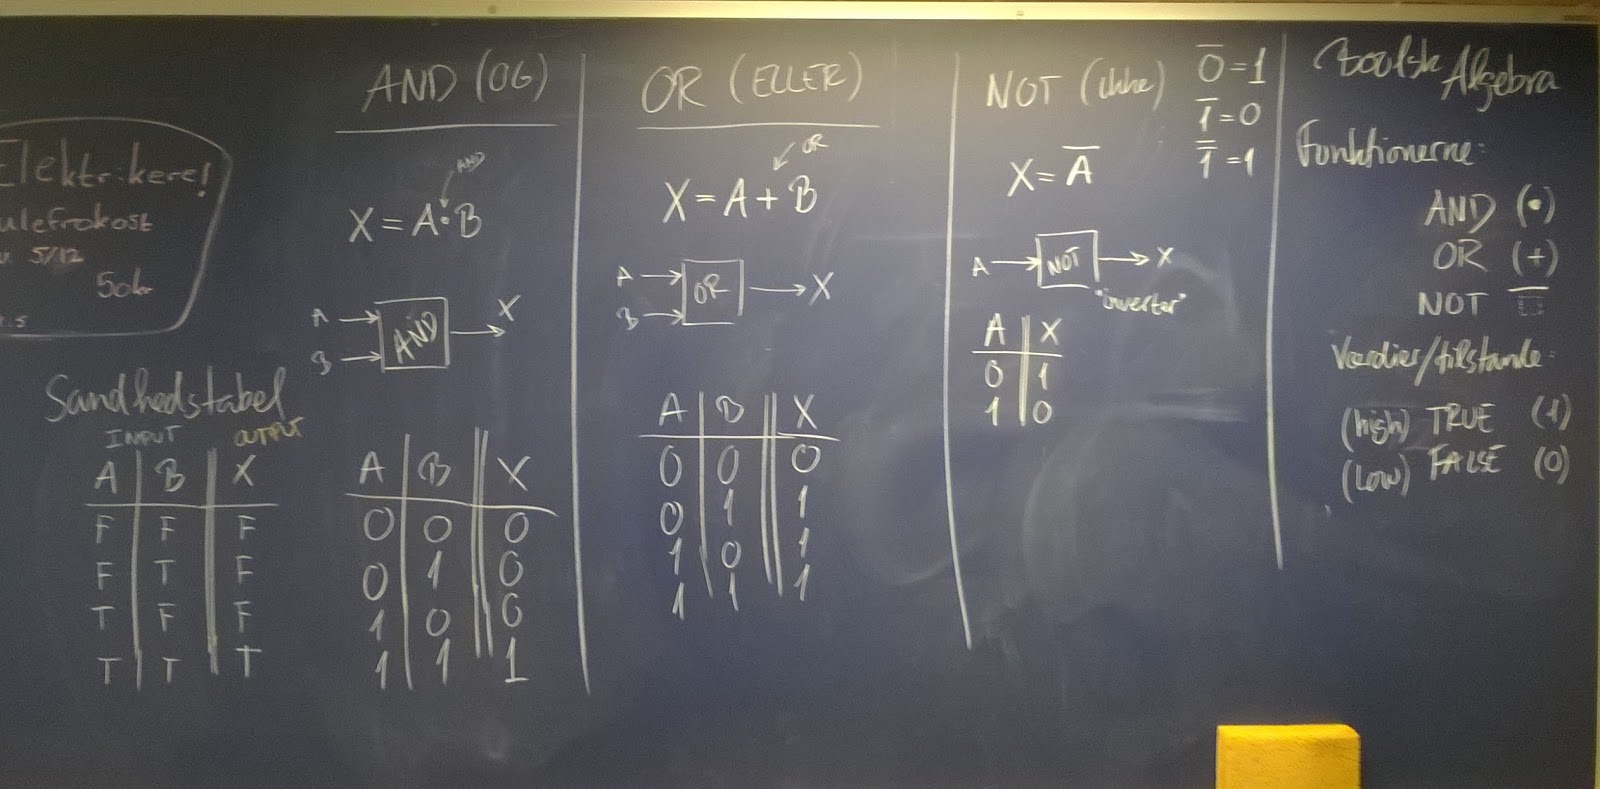 Elektrikere!
ulefrokost
5/12
50kr
Sandhedstabel
INPUT OUTPUT
A B X
F F F
F T F
T F F
T T T
AND (OG)
AND
X = A · B
A
B
AND
X
A B X
0 0 0
0 1 0
1 0 0
1 1 1
OR (ELLER)
OR
X = A + B
A
B
OR
X
A B X
0 0 0
0 1 1
1 0 1
1 1 1
NOT (ikke)
0̅ = 1
1̅ = 0
1̿ = 1
X = A̅
A NOT X
"inverter"
A X
0 1
1 0
Boolsk Algebra
Funktionerne:
AND (•)
OR (+)
NOT
Værdier/tilstande:
(high) TRUE (1)
(low) FALSE (0)